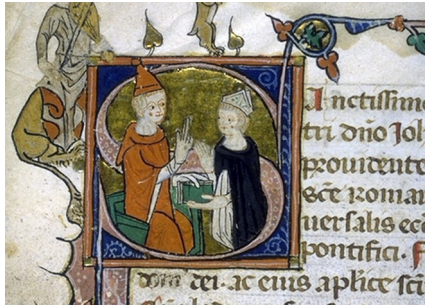 Anctissim
tri dño Joh
prouidente
sc̄e Roma
uersalis ecc
pontifici.
dei. ac eius ap̄lice